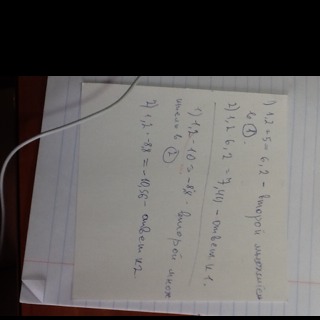 1) 1,2+5=6,2 - второй множител
ь ①.
2) 1,2 6,2 = 7,44 - ответ к 1.
1) 1,2-10=-8,8 - второй множ
итель в ②
2) 1,2 · -8,8 = -10,56 - ответ к 2.